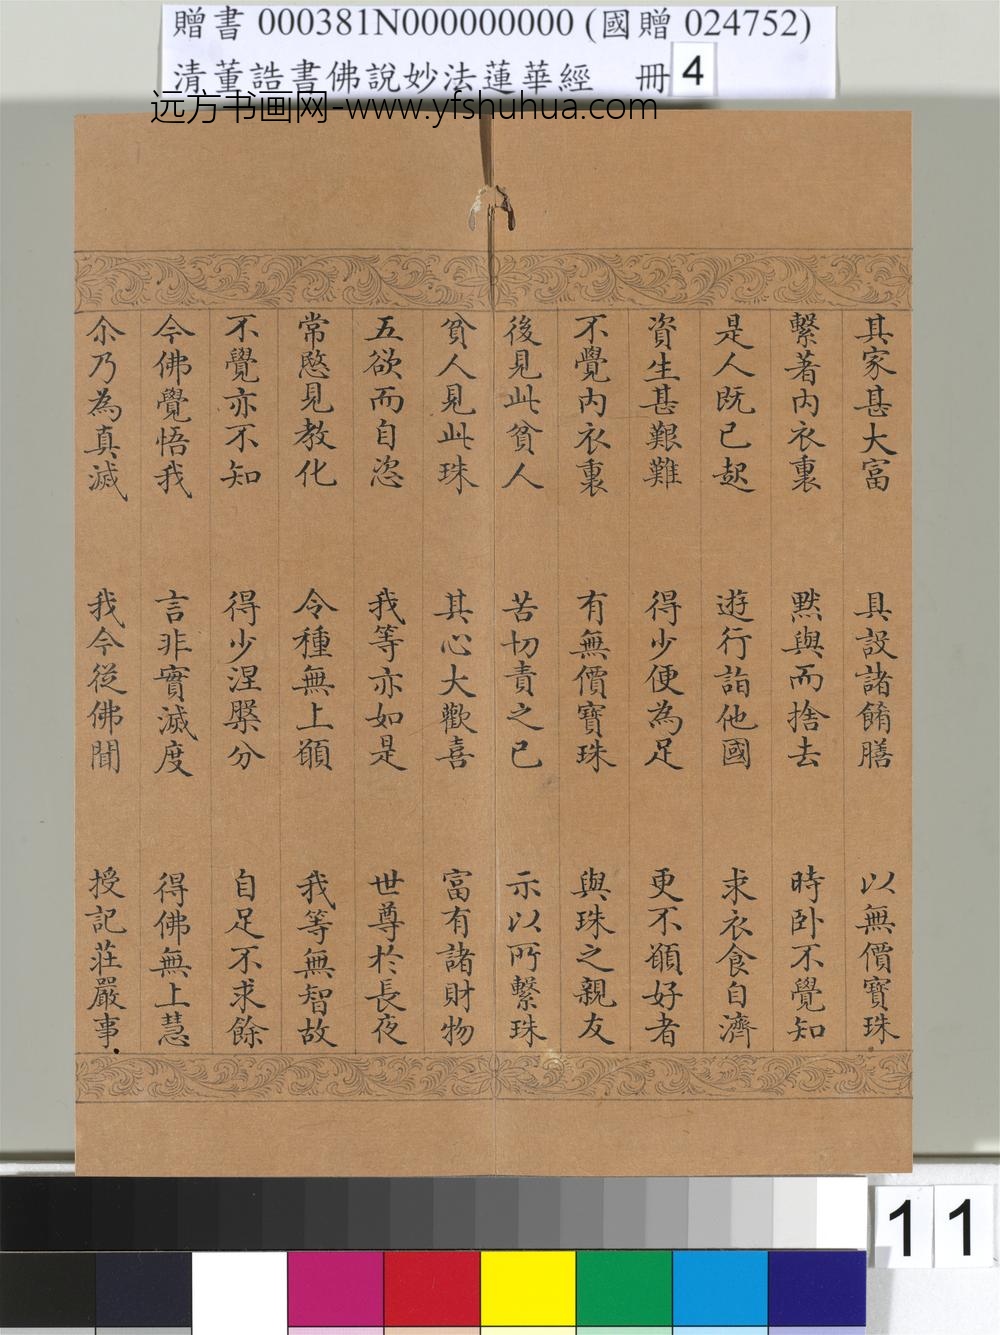 贈書 000381N000000000 (國贈 024752)
清董誥書佛說妙法蓮華經 冊 4
远方书画网-www.yfshuhua.com
其家甚大富 具設諸餚膳 以無價寶珠
繫著內衣裏 默與而捨去 時卧不覺知
是人既已起 遊行詣他國 求衣食自濟
資生甚艱難 得少便為足 更不願好者
不覺內衣裏 有無價寶珠 與珠之親友
後見此貧人 苦切責之已 示以所繫珠
貧人見此珠 其心大歡喜 富有諸財物
五欲而自恣 我等亦如是 世尊於長夜
常愍見教化 令種無上願 我等無智故
不覺亦不知 得少涅槃分 自足不求餘
今佛覺悟我 言非實滅度 得佛無上慧
尒乃為真滅 我今從佛聞 授記莊嚴事
11